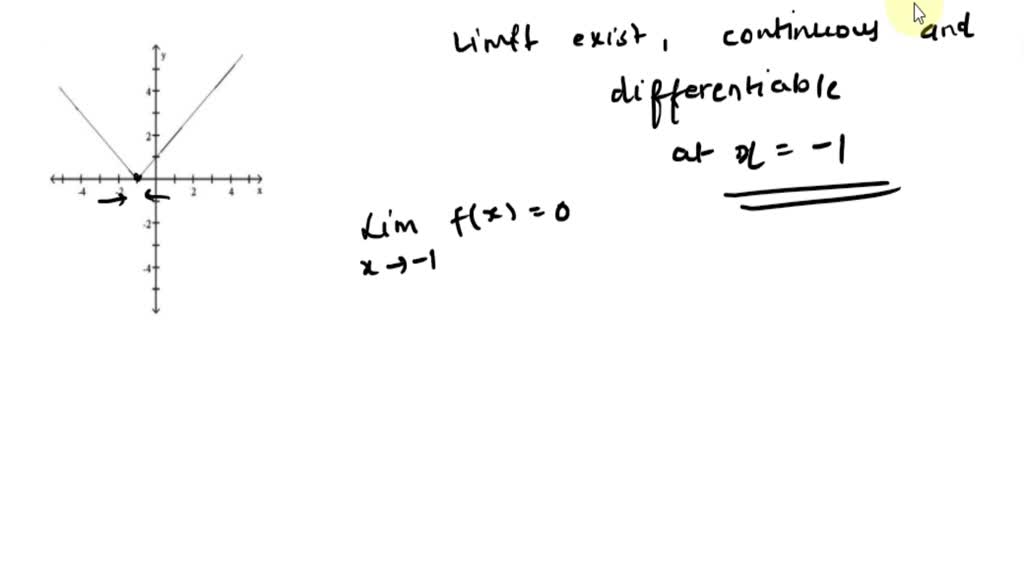 Limit exist, continuous and
differentiable
at x = -1
y
4
2
-4
-2
2
4
x
-2
-4
Lim f(x) = 0
x → -1